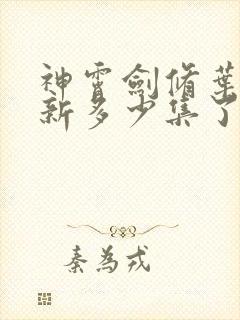 神霄劍脩葉
新多少集了
秦為戎